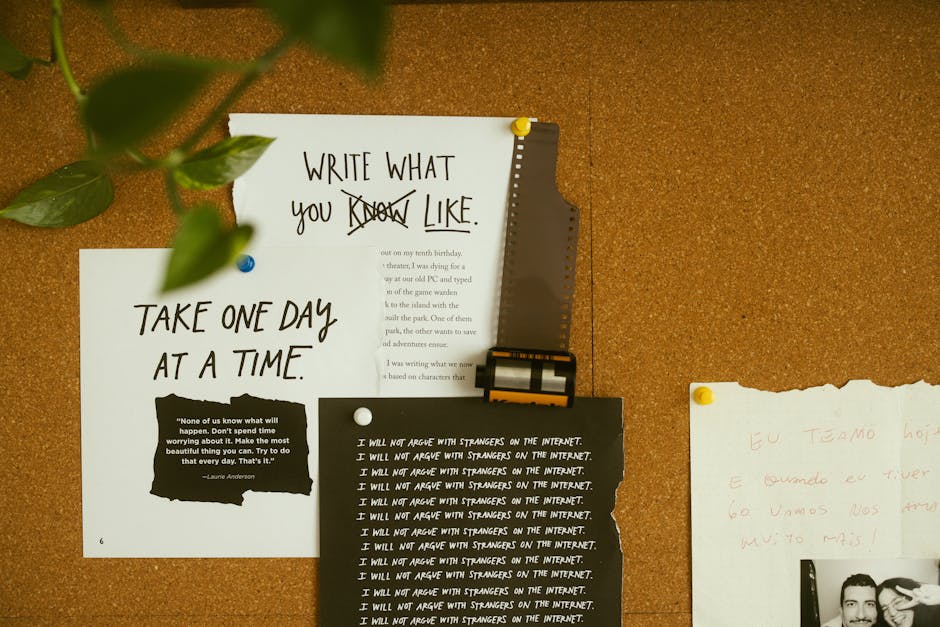 WRITE WHAT
YOU KNOW LIKE.
out on my tenth birthday.
theater, I was dying for a
at our old PC and typed
of the game warden
to the island with the
built the park. One of them
park, the other wants to save
adventures ensue.
I was writing what we now
based on characters that
TAKE ONE DAY
AT A TIME.
“None of us know what will
happen. Don’t spend time
worrying about it. Make the most
beautiful thing you can. Try to do
that every day. That’s it.”
—Laurie Anderson
6
I WILL NOT ARGUE WITH STRANGERS ON THE INTERNET.
I WILL NOT ARGUE WITH STRANGERS ON THE INTERNET.
I WILL NOT ARGUE WITH STRANGERS ON THE INTERNET.
I WILL NOT ARGUE WITH STRANGERS ON THE INTERNET.
I WILL NOT ARGUE WITH STRANGERS ON THE INTERNET.
I WILL NOT ARGUE WITH STRANGERS ON THE INTERNET.
I WILL NOT ARGUE WITH STRANGERS ON THE INTERNET.
I WILL NOT ARGUE WITH STRANGERS ON THE INTERNET.
I WILL NOT ARGUE WITH STRANGERS ON THE INTERNET.
I WILL NOT ARGUE WITH STRANGERS ON THE INTERNET.
I WILL NOT ARGUE WITH STRANGERS ON THE INTERNET.
I WILL NOT ARGUE WITH STRANGERS ON THE INTERNET.
I WILL NOT ARGUE WITH STRANGERS ON THE INTERNET.
EU TEAMO
E Quando eu tiver
60 vamos nos
muito mais!